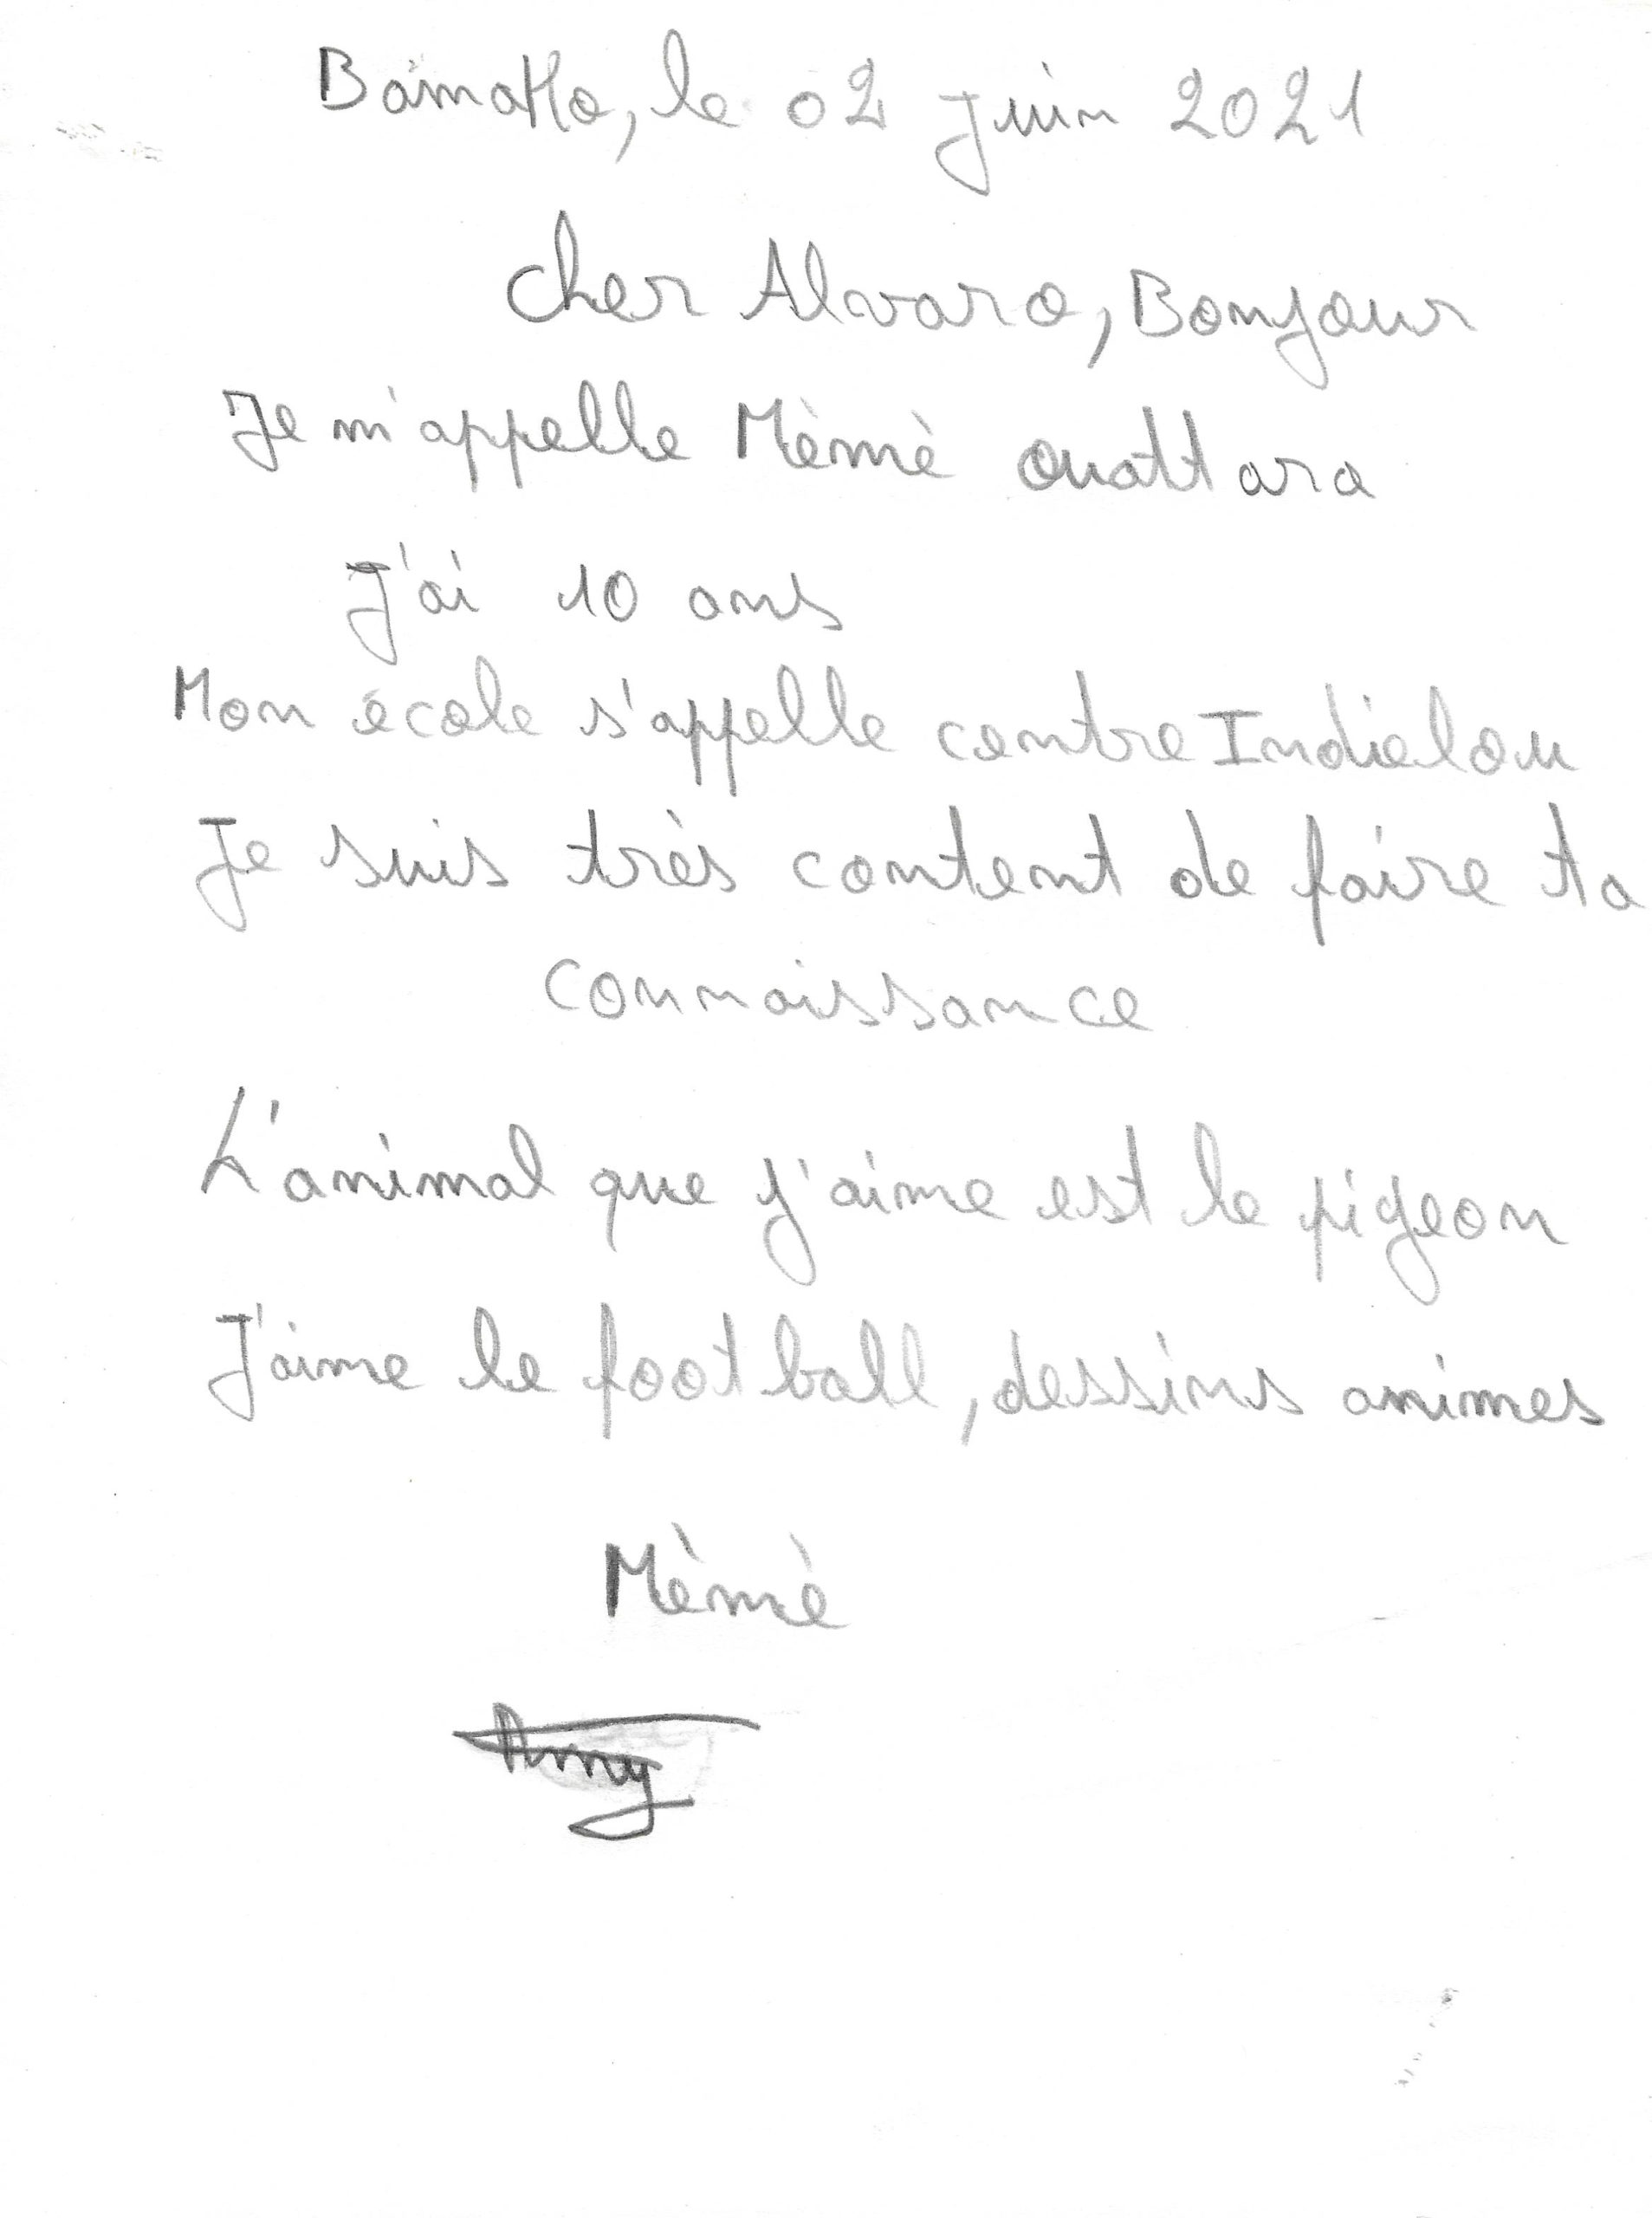 Bamako, le 02 Juin 2021
cher Alvaro, Bonjour
Je m'appelle Mèmè ouattara
J'ai 10 ans
Mon école s'appelle centre Indielou
Je suis très content de faire ta
connaissance
L'animal que j'aime est le pigeon
J'aime le football, dessins animes
Mèmè